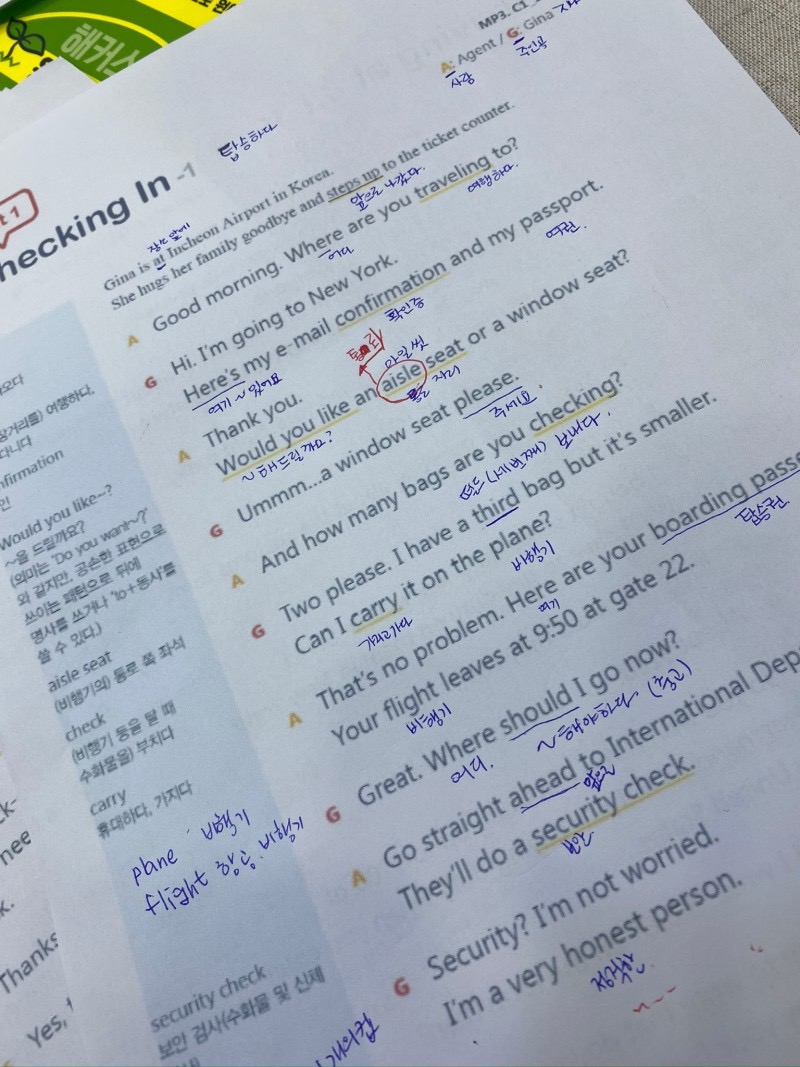 해커스
MP3. C1
A: Agent / G: Gina
사람
주인공
탑승하다
t 1
hecking In -1
Gina is at Incheon Airport in Korea.
장소앞에
She hugs her family goodbye and steps up to the ticket counter.
앞으로 나갔다.
A Good morning. Where are you traveling to?
어디
여행하다.
G Hi. I'm going to New York.
Here's my e-mail confirmation and my passport.
여기~있어요
확인증
여권.
A Thank you.
통로
아일씻
Would you like an aisle seat or a window seat?
~해드릴까요?
자리
G Ummm...a window seat please.
주세요.
A And how many bags are you checking?
보내다.
G Two please. I have a third bag but it's smaller.
Can I carry it on the plane?
가지고가다
비행기
A That's no problem. Here are your boarding passe
여기
탑승권.
Your flight leaves at 9:50 at gate 22.
비행기
G Great. Where should I go now?
어디.
~해야하다. (충고)
A Go straight ahead to International Dep
앞으로
They'll do a security check.
보안
G Security? I'm not worried.
I'm a very honest person.
정직한.
여행하다,
nfirmation
인
Would you like~?
~을 드릴까요?
(의미는 'Do you want~?'
와 같지만, 공손한 표현으로
쓰이는 패턴으로 뒤에
명사를 쓰거나 'to+동사'를
쓸 수 있다.)
aisle seat
(비행기의) 통로 쪽 좌석
check
(비행기 등을 탈 때
수화물을) 부치다
carry
휴대하다, 가지다
plane 비행기
flight 항공. 비행기
security check
보안 검사(수화물 및 신체
k-
nee
k.
Thanks
Yes,